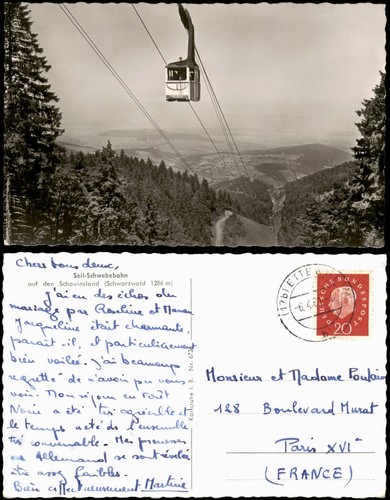 Chers tous deux,
Seil-Schwebebahn
auf den Schauinsland (Schwarzwald 1286 m)
J'ai eu des échos du
mariage par Pauline et Manon
Jacqueline était charmante,
paraît-il, et particulièrement
bien voilée. J'ai beaucoup
regretté de n'avoir pu vous
voir. Mon séjour en Forêt
Noire a été très agréable et
le temps a été dans l'ensemble
très convenable. Mes progrès
en Allemand se sont révélés
être assez faibles.
Bien affectueusement Martine
Karlsruhe i. B. Nr.
(17b)
-6.4.61
DEUTSCHE BUNDESPOST
20
Monsieur et Madame
128 Boulevard Murat
Paris XVIe
(FRANCE)